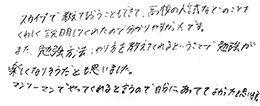 スカイプで教えてもらうこともできて、高校の入試などのことを
くわしく説明してくれたので分かりやすかったです。
また、勉強方法、やり方を教えてくれるということで勉強が
楽しくなりそうだと思いました。
マンツーマンでやってくれると言うので自分にあっててよかったと思います